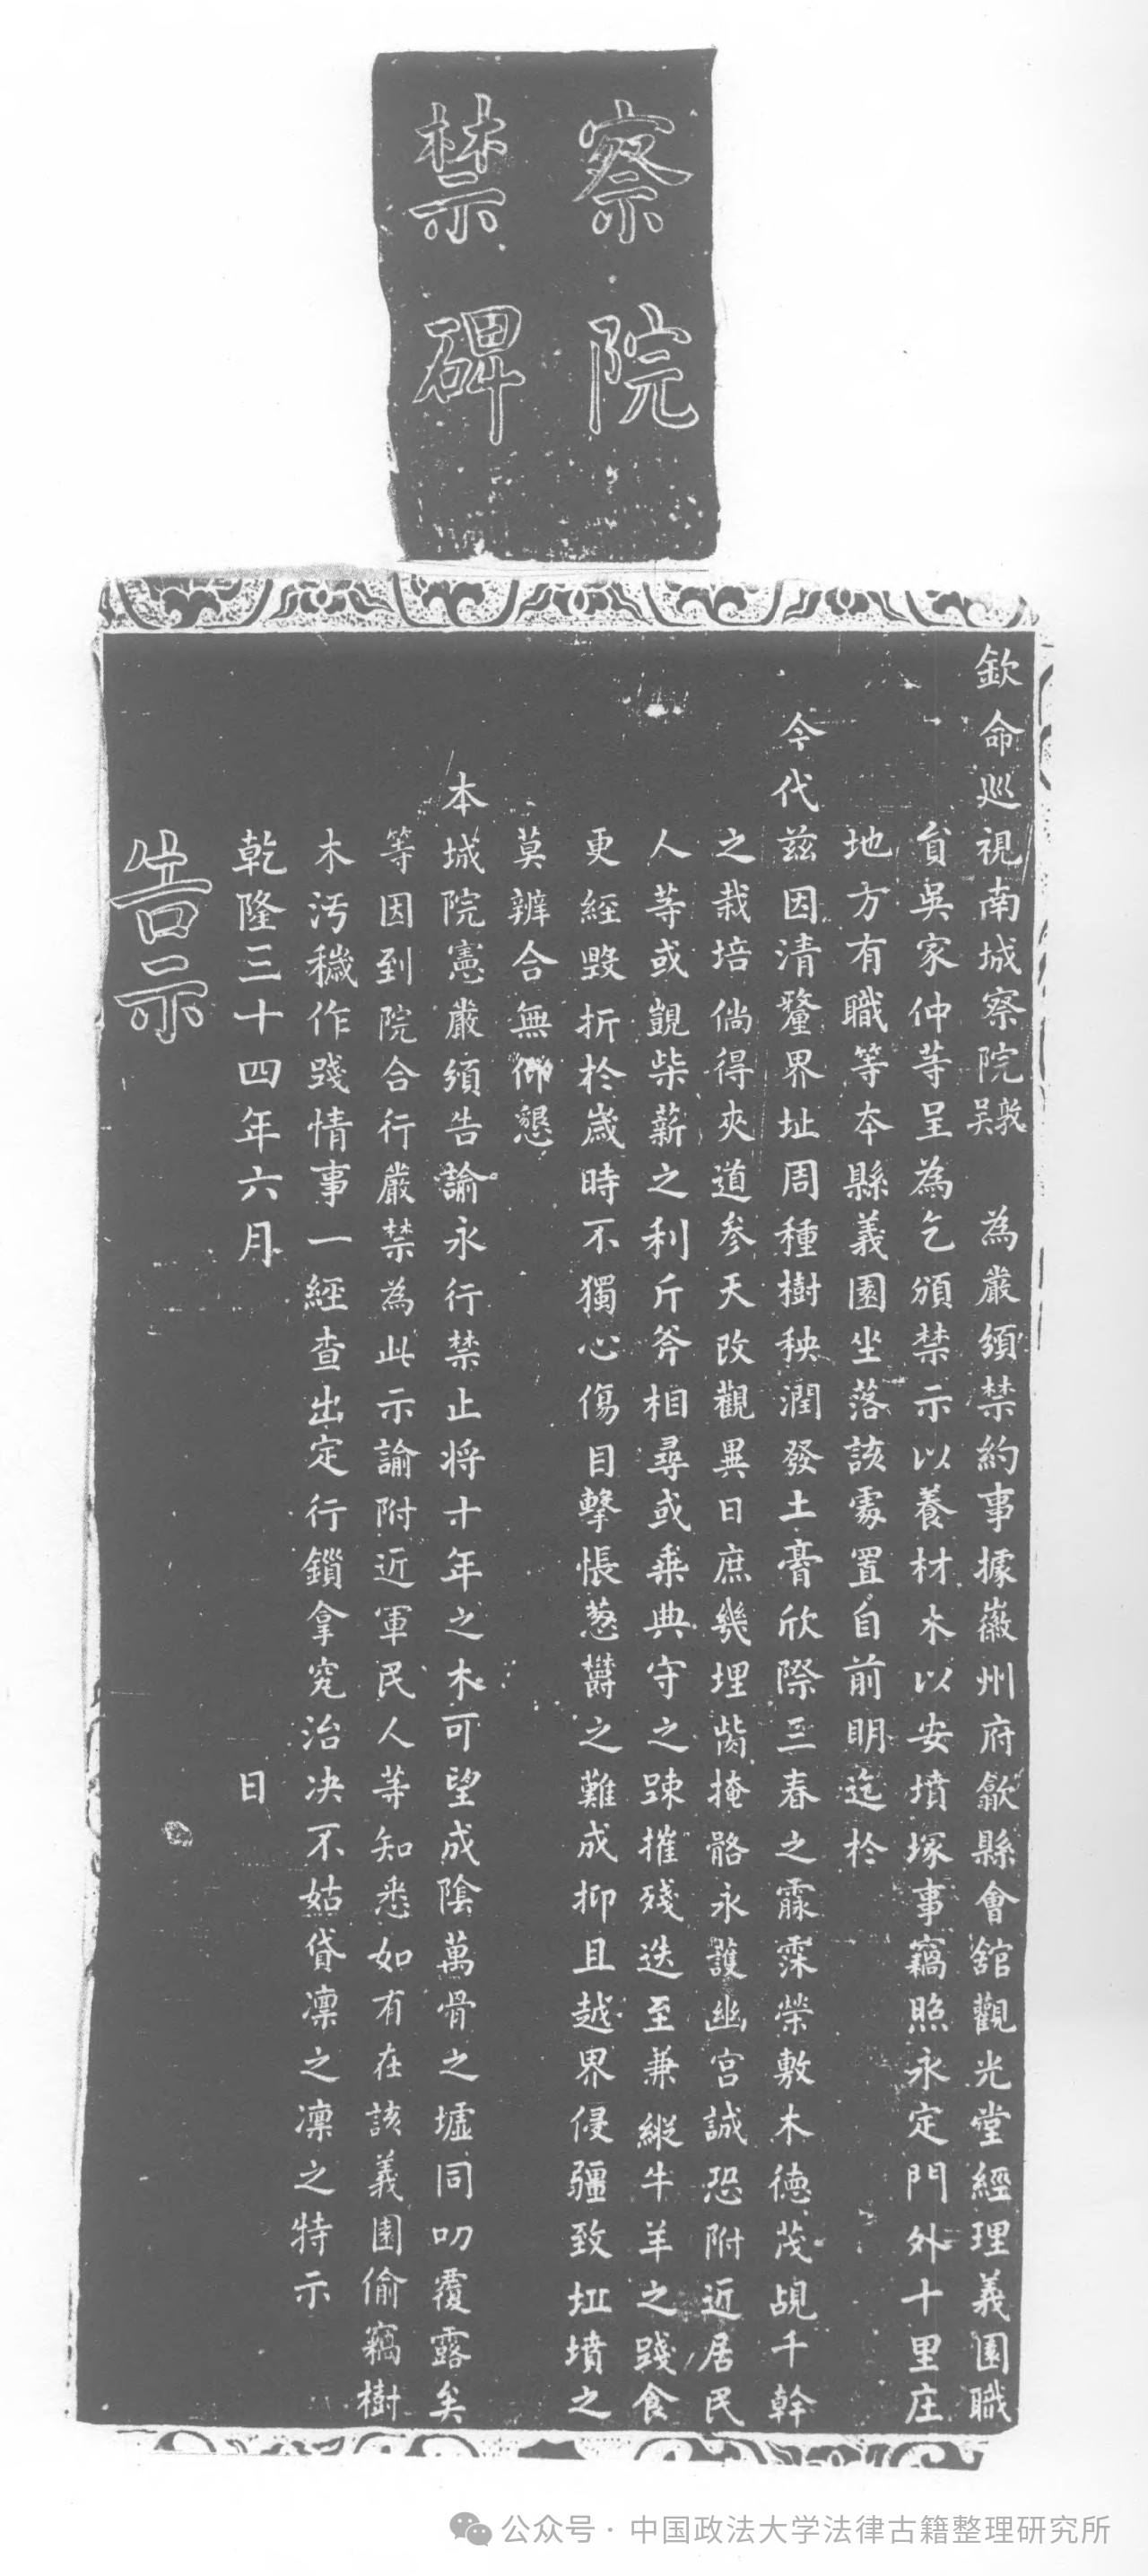 察院
禁碑
欽命巡視南城察院敦吳 為嚴須禁約事據徽州府歙縣會舘觀光堂經理義園職
貟吳家仲等呈為乞頒禁示以養材木以安墳塚事竊照永定門外十里庄
地方有職等本縣義園坐落該處置自前明迄於
今代兹因清釐界址周種樹秧潤發土膏欣際三春之霢霂榮敷木德茂覘千幹
之栽培倘得夾道参天改觀異日庶幾埋胔掩骼永護幽宫誠恐附近居民
人等或覬柴薪之利斤斧相尋或乗典守之踈摧殘迭至兼縱牛羊之踐食
更經毀折於嵗時不獨心傷目擊悵葱欝之難成抑且越界侵疆致坵墳之
莫辨合無仰懇
本城院憲嚴須告諭永行禁止将十年之木可望成陰萬骨之墟同叨覆露矣
等因到院合行嚴禁為此示諭附近軍民人等知悉如有在該義園偷竊樹
木汚穢作踐情事一經查出定行鎖拿究治决不姑貸凛之凛之特示
乾隆三十四年六月 日
告示
公众号·中国政法大学法律古籍整理研究所